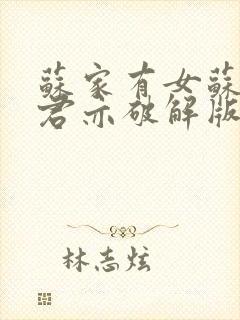 蘇家有女蘇
君亦破解版
林志炫